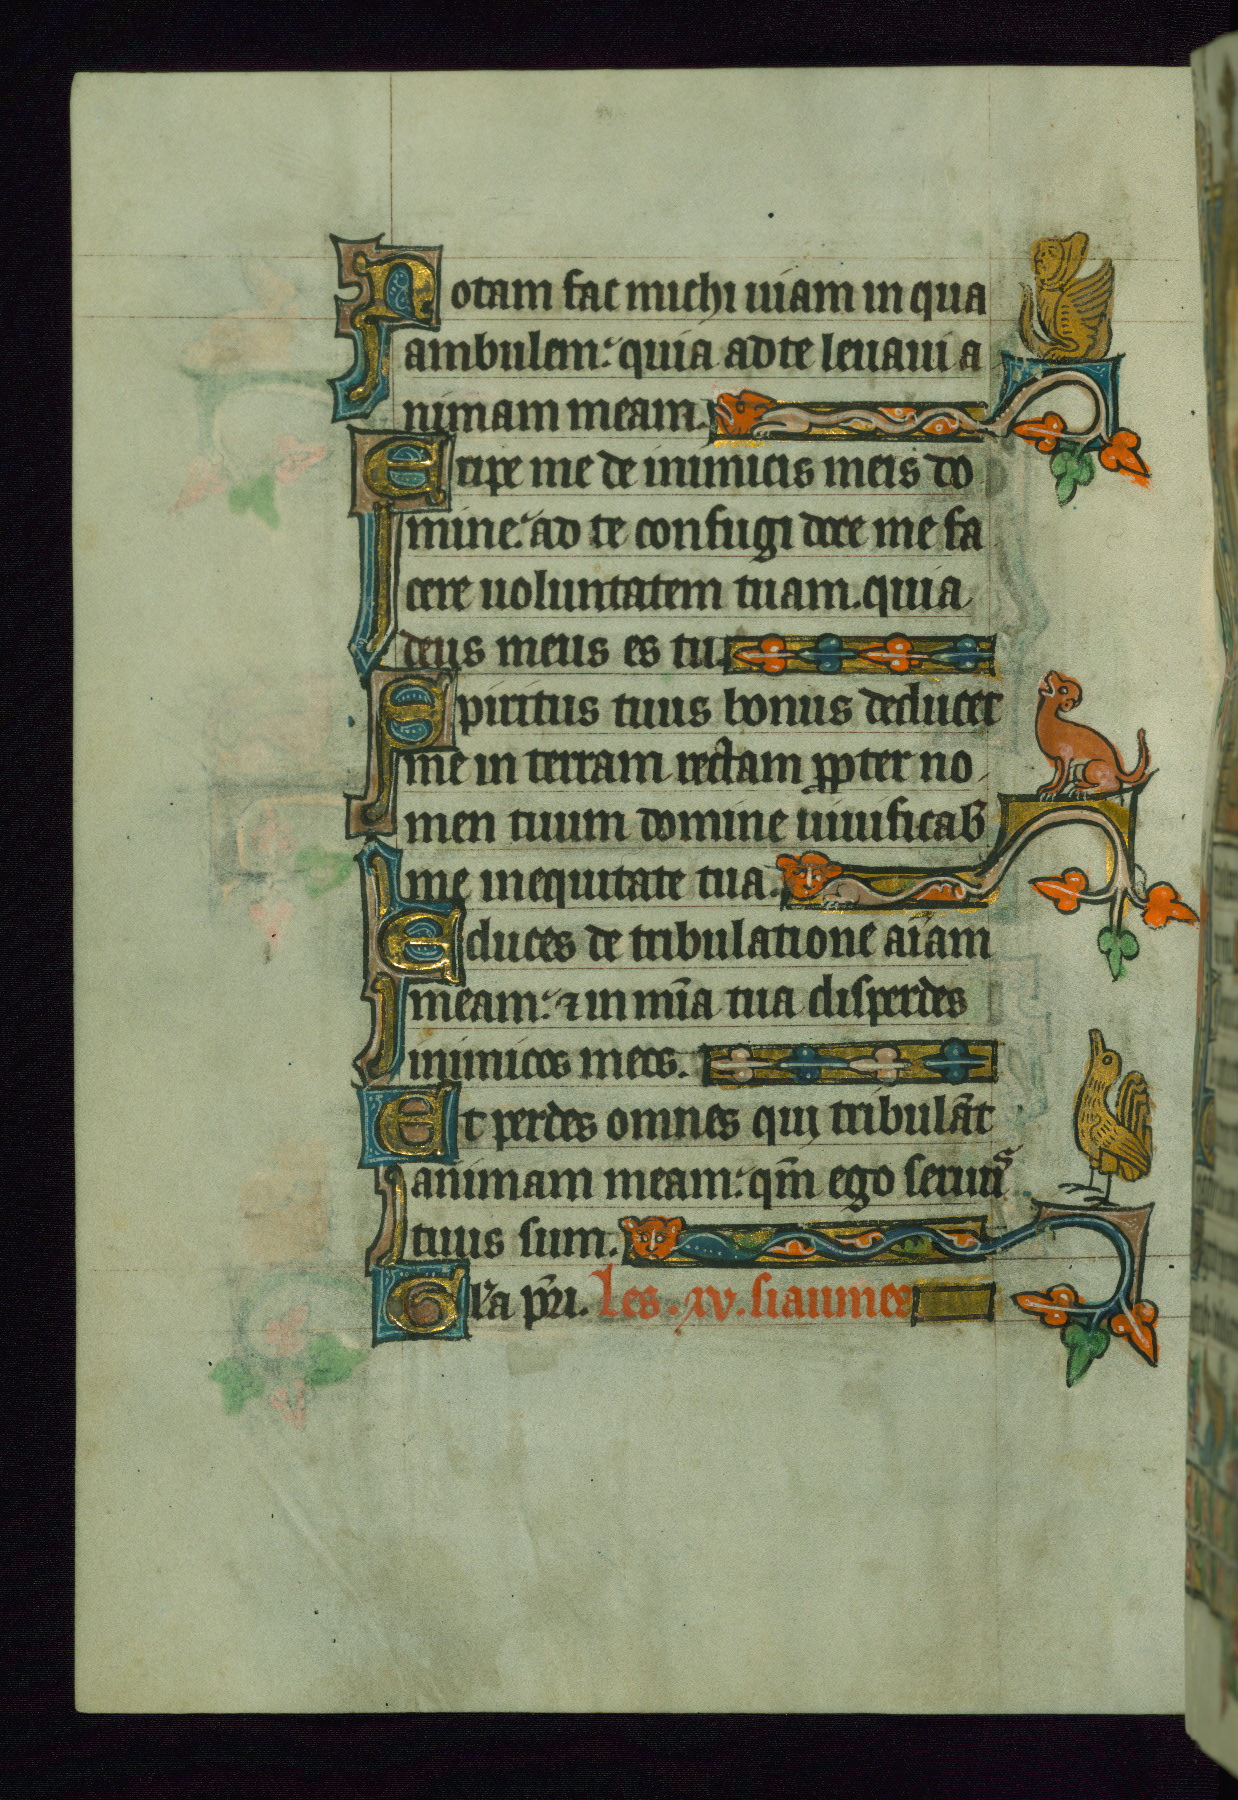 Notam fac michi uiam in qua
ambulem: quia ad te leuaui a
nimam meam.
Eripe me de inimicis meis do
mine: ad te confugi doce me fa
cere uoluntatem tuam. quia
deus meus es tu.
Spiritus tuus bonus deducet
me in terram rectam ꝓpter no
men tuum domine uiuificab
me inequitate tua.
Educes de tribulatione aīam
meam: ⁊ in mīa tua disperdes
inimicos meos.
Et perdes omnes qui tribulāt
animam meam: qm̄ ego seruuꝰ
tuus sum.
Gl'a pr̄i. Les . xv . siaumes